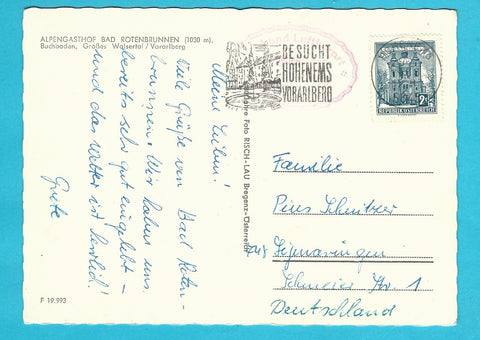 ALPENGASTHOF BAD ROTENBRUNNEN (1030 m),
Buchboden, Großes Walsertal / Vorarlberg
Meine Lieben!
Viele Grüße von Bad Roten-
brunnen. Wir haben uns
bereits sehr gut eingelebt –
und das Wetter ist herrlich!
Grete
F 19.993
Foto RISCH-LAU Bregenz-Österreich
BESUCHT
HOHENEMS
VORARLBERG
2
REPUBLIK ÖSTERREICH
Familie
Pius Schnitzer
Sigmaringen
Schmeier Str. 1
Deutschland